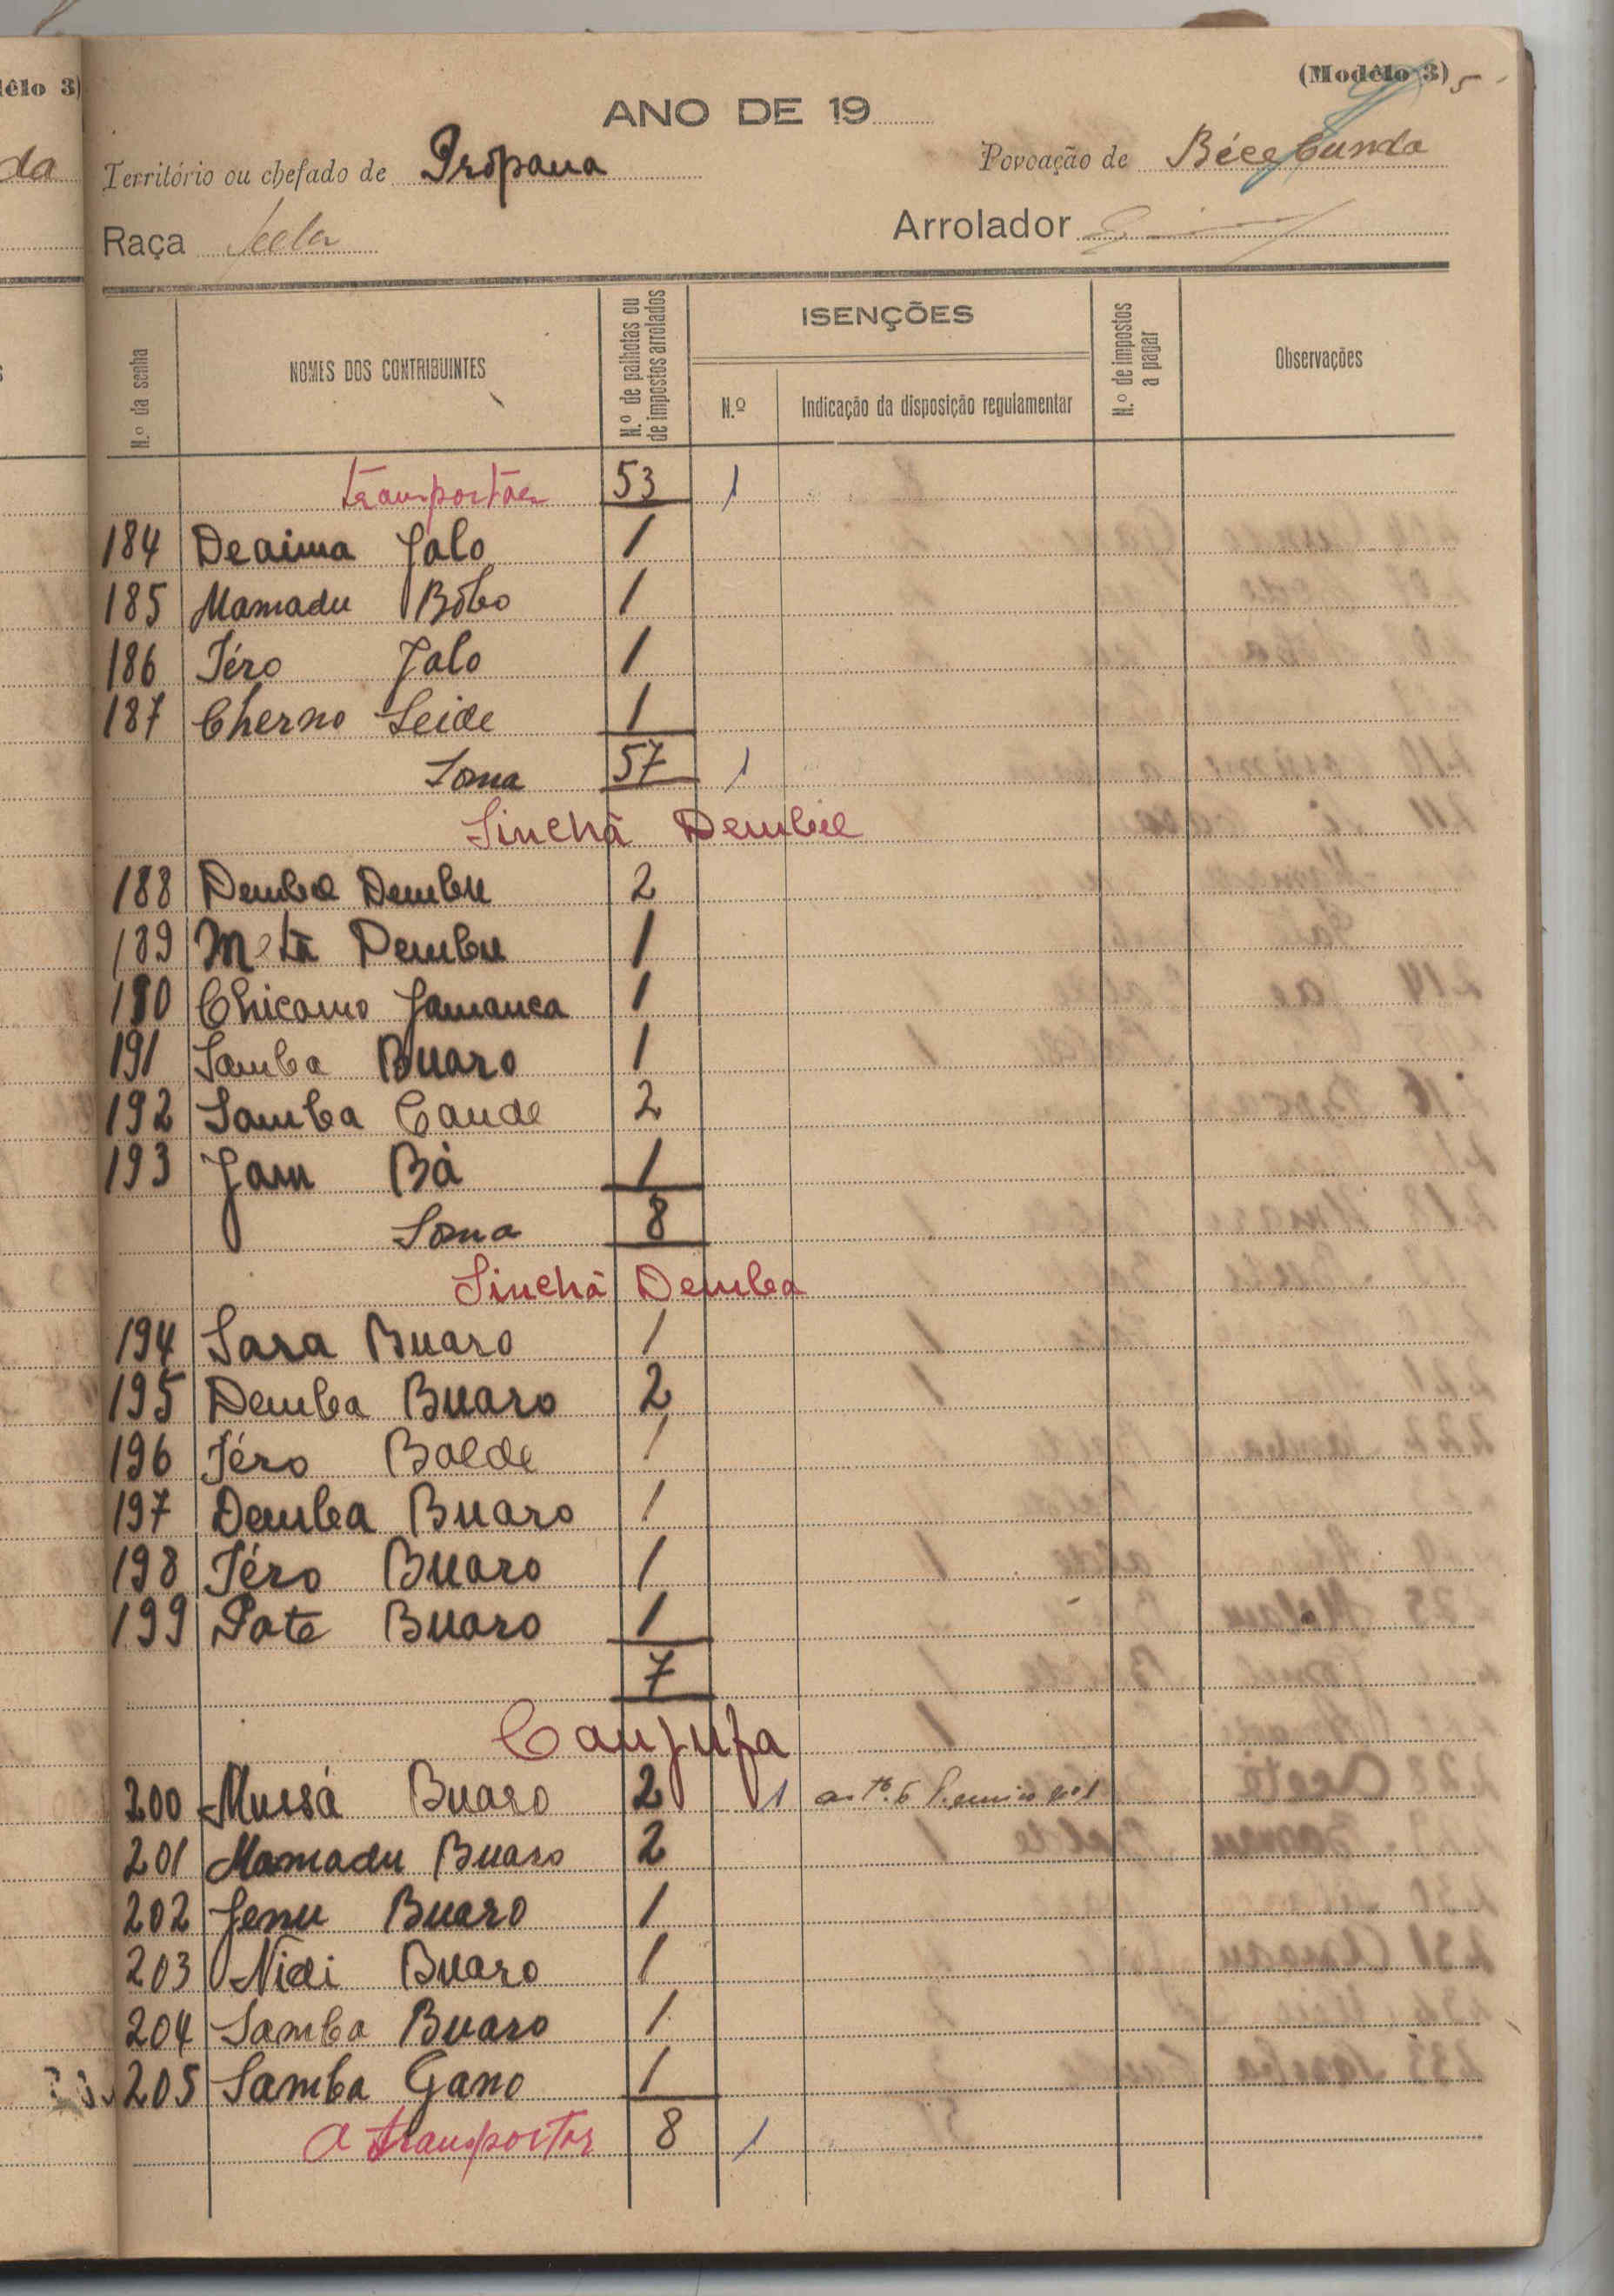 (Modêlo 3) 5
ANO DE 19
Território ou chefado de Propana
Povoação de
Raça
Arrolador
N.º da senha
NOMES DOS CONTRIBUINTES
N.º de palhotas ou de impostos arrolados
ISENÇÕES
N.º
Indicação da disposição regulamentar
N.º de impostos a pagar
Observações
transportar 53 1
184 Deaima Jalo 1
185 Mamadu Bôbo 1
186 Téro Jalo 1
187 Cherno Seide 1
Soma 57 1
Sinchã
188 Demba Dembu 2
189 Dembu 1
190 Chicamo Jamanca 1
191 Samba Buaro 1
192 Samba Cande 2
193 Jam Bá 1
Soma 8
Sinchã Demba
194 Sara Buaro 1
195 Demba Buaro 2
196 Téro Balde 1
197 Demba Buaro 1
198 Téro Buaro 1
199 Pate Buaro 1
7
Canjufa
200 Mussá Buaro 2 1
201 Mamadu Buaro 2
202 Jenu Buaro 1
203 Nidi Buaro 1
204 Samba Buaro 1
205 Samba Gano 1
a transportar 8 1